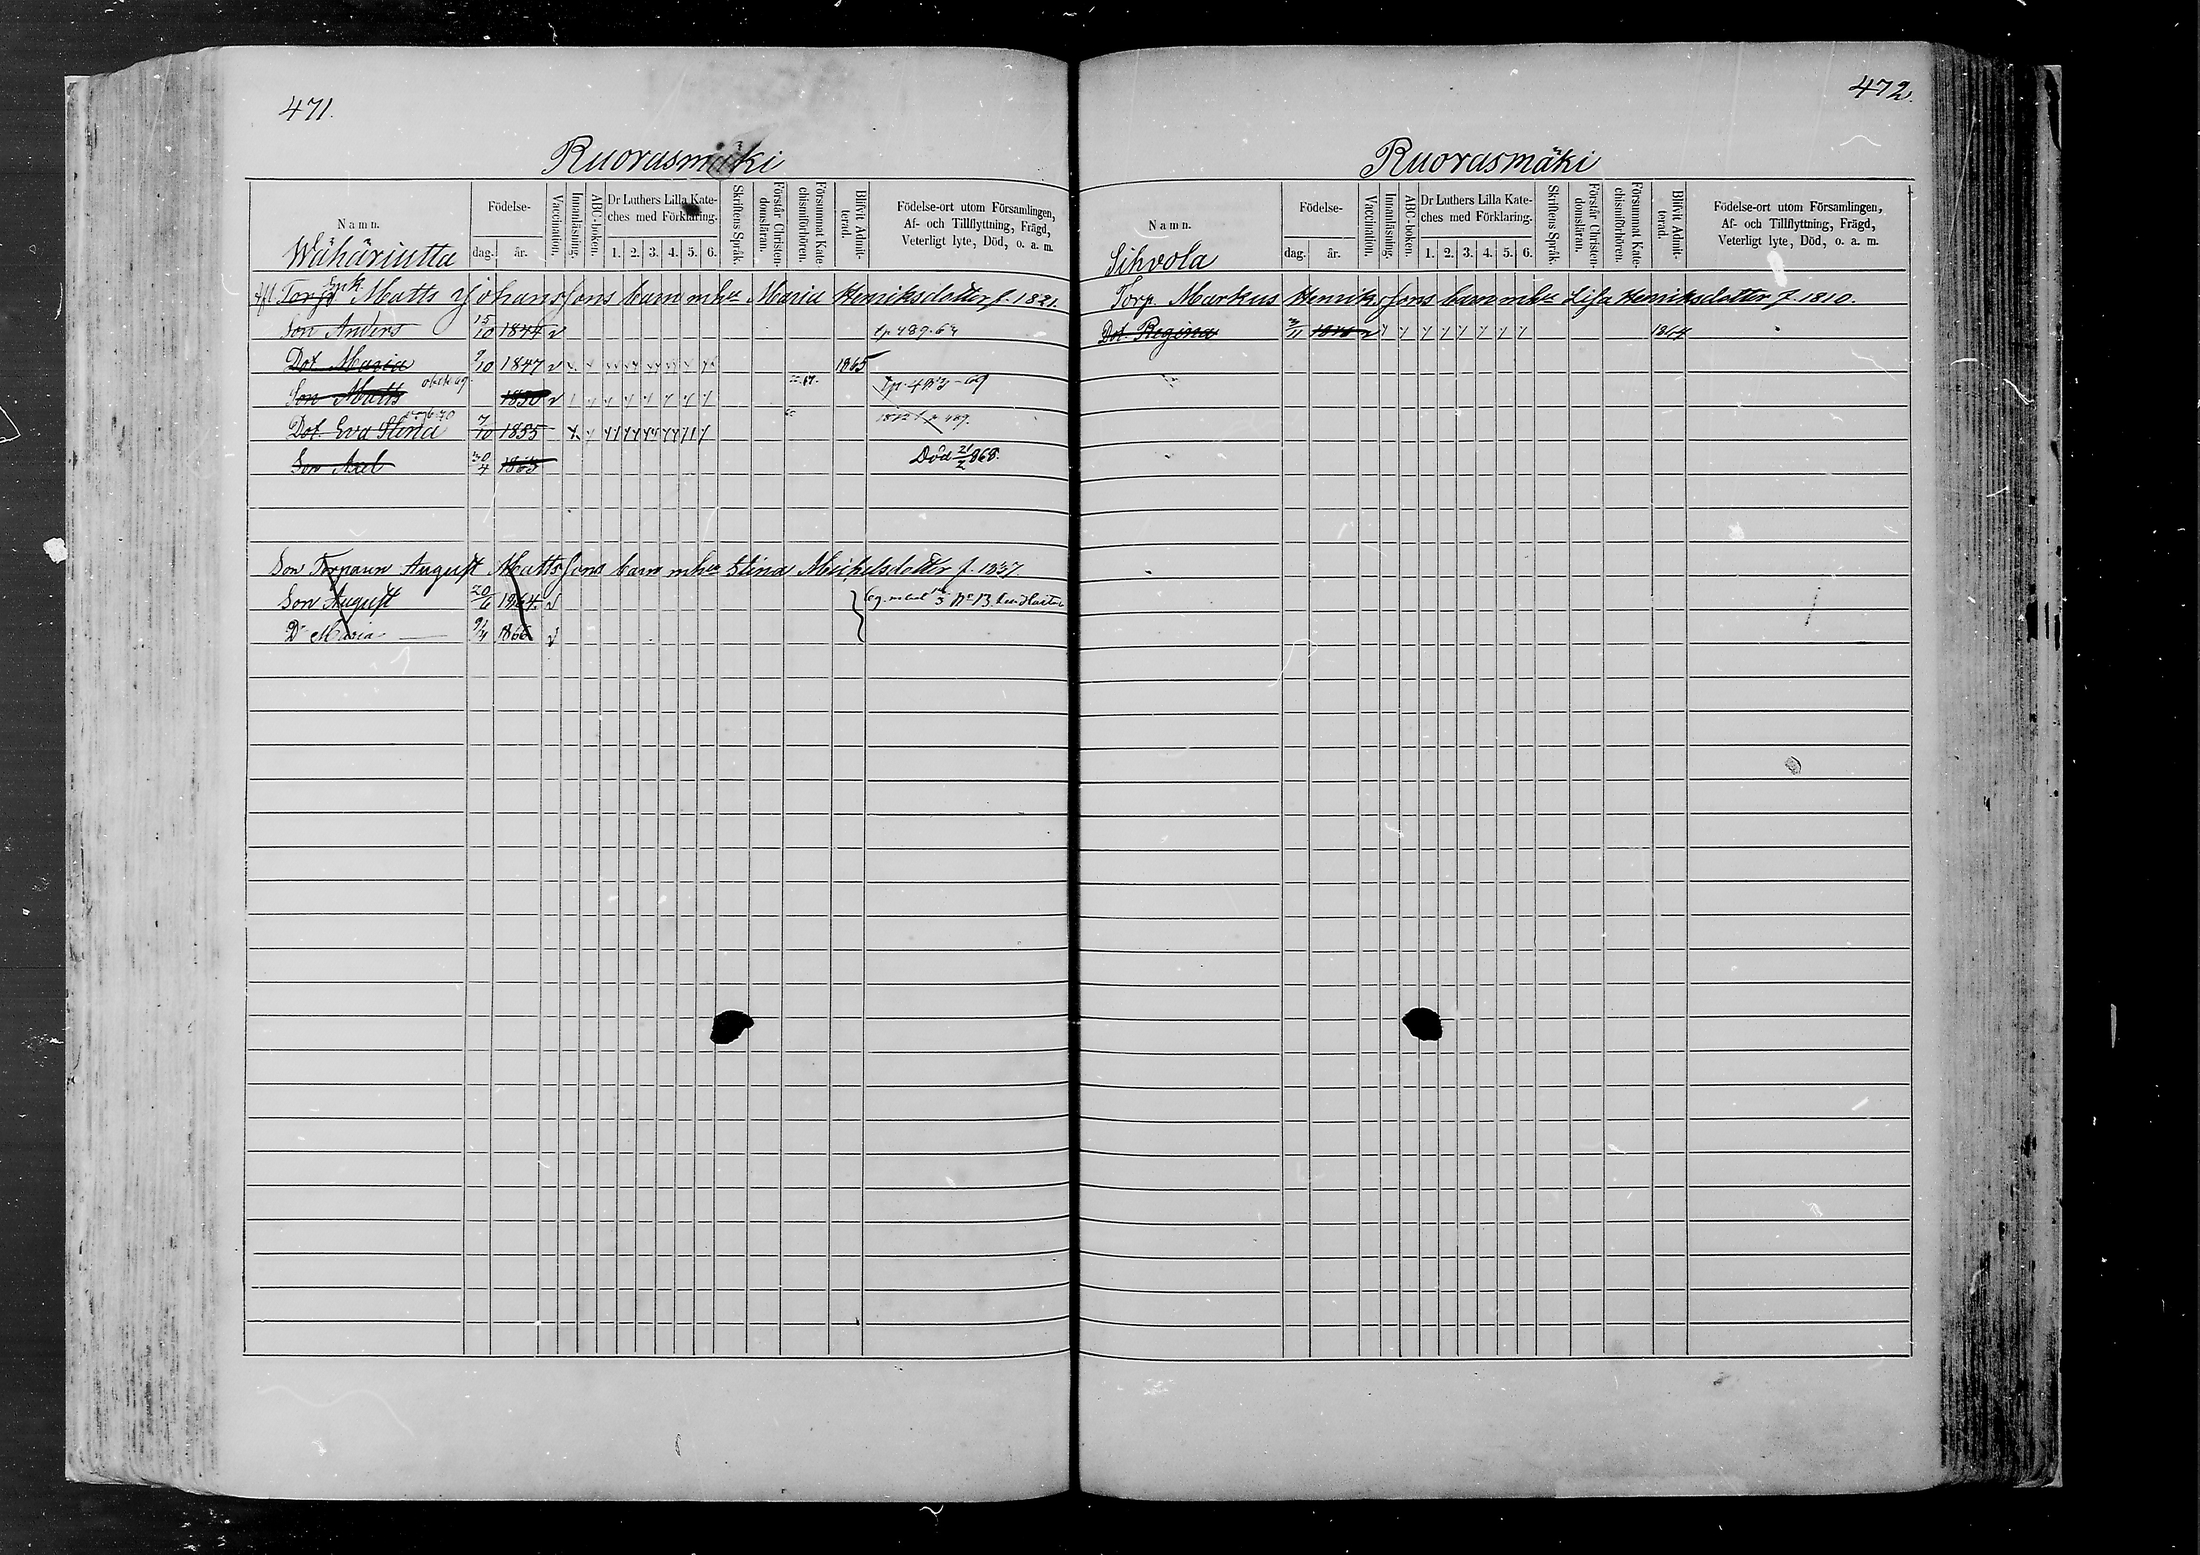 471.
Ruorasmäki
Namn.
Wähäriutta
Födelse-
dag.
år.
Vaccination.
Innanläsning.
ABC-boken.
Dr Luthers Lilla Kate-
ches med Förklaring.
1. 2. 3. 4. 5. 6.
Skriftens Språk.
Förstår Christen-
domsläran.
Försummat Kate-
chismiförhören.
Blifvit Admit-
terad.
Födelse-ort utom Församlingen,
Af- och Tillflyttning, Frägd,
Veterligt lyte, Död, o. a. m.
Enk.
Torp Matts Johanssons barn mhr Maria Henriksdotter f. 1821.
Son Anders 15/10 1844 v
Dot. Maria 9/10 1847 v 1865
Son Matts 1850 v
Dot. Eva Stina 7/10 1855
Son Axel 30/4 1865 Död 21/2 868.
Son Torparen August Mattssons barn mhr Stina Michelsdotter f. 1837.
Son August 20/6 1864. v
Dr Maria 1866 v
472.
Ruorasmäki
Namn.
Sihvola
Födelse-
dag.
år.
Vaccination.
Innanläsning.
ABC-boken.
Dr Luthers Lilla Kate-
ches med Förklaring.
1. 2. 3. 4. 5. 6.
Skriftens Språk.
Förstår Christen-
domsläran.
Försummat Kate-
chismiförhören.
Blifvit Admit-
terad.
Födelse-ort utom Församlingen,
Af- och Tillflyttning, Frägd,
Veterligt lyte, Död, o. a. m.
Torp. Markus Henrikssons barn mhr Lisa Henriksdotter f. 1810.
Dot. Regina 3/11 1846 v 1864